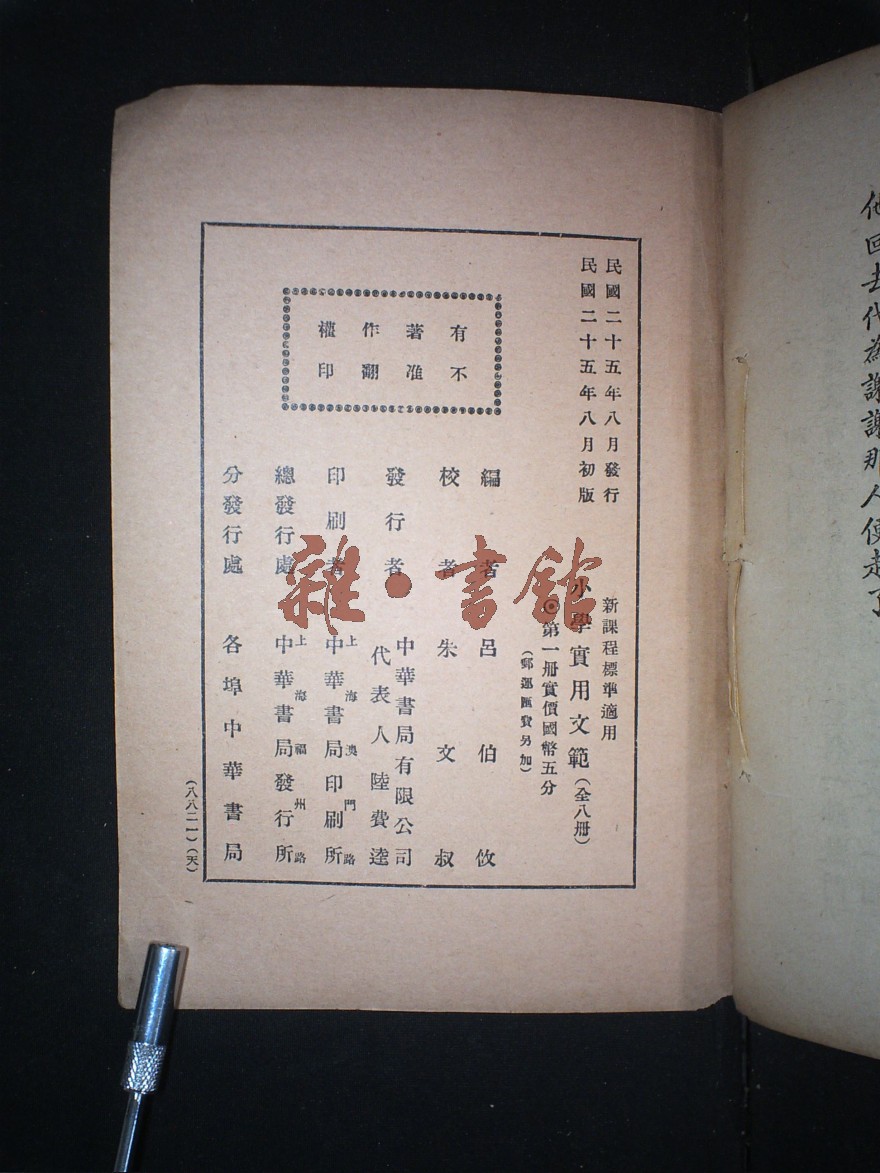 他回去代為謝謝那人便走了
民國二十五年八月發行
民國二十五年八月初版
有著作權
不准翻印
新課程標準適用
小學實用文範(全八冊)
◎第一冊實價國幣五分
(郵運匯費另加)
編者 呂伯攸
校者 朱文叔
發行者 中華書局有限公司
代表人 陸費逵
印刷者 上海澳門路
中華書局印刷所
總發行處 上海福州路
中華書局發行所
分發行處 各埠中華書局
(八八二一)(天)
雜·書館